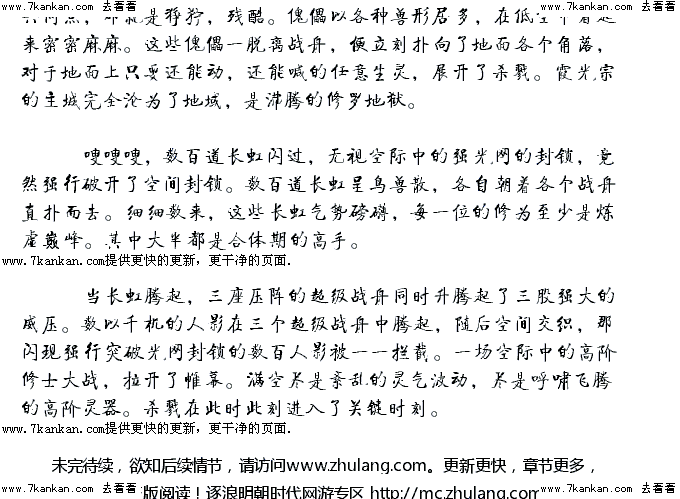 www.7kankan.com 去看看 www.7kankan.com 去看看 www.7kankan.com 去看看 www.7kankan.com 去看看
是狰狞，残酷。傀儡以各种兽形居多，在低空中看起
来密密麻麻。这些傀儡一脱离战舟，便立刻扑向了地面各个角落，
对于地面上只要还能动，还能喊的任意生灵，展开了杀戮。霞光宗
的主城完全沦为了地域，是沸腾的修罗地狱。
嗖嗖嗖，数百道长虹闪过，无视空际中的强光网的封锁，竟
然强行破开了空间封锁。数百道长虹呈鸟兽散，各自朝着各个战舟
直扑而去。细细数来，这些长虹气势磅礴，每一位的修为至少是炼
虚巅峰。其中大半都是合体期的高手。
www.7kankan.com提供更快的更新，更干净的页面.
当长虹腾起，三座压阵的超级战舟同时升腾起了三股强大的
威压。数以千机的人影在三个超级战舟中腾起，随后空间交织，那
闪现强行突破光网封锁的数百人影被一一拦截。一场空际中的高阶
修士大战，拉开了帷幕。满空尽是紊乱的灵气波动，尽是呼啸飞腾
的高阶灵器。杀戮在此时此刻进入了关键时刻。
www.7kankan.com提供更快的更新，更干净的页面.
未完待续，欲知后续情节，请访问www.zhulang.com。更新更快，章节更多，
www.7kankan.com 去看看 版阅读！逐浪明朝时代网游专区 http://mc.zhulang.com www.7kankan.com 去看看